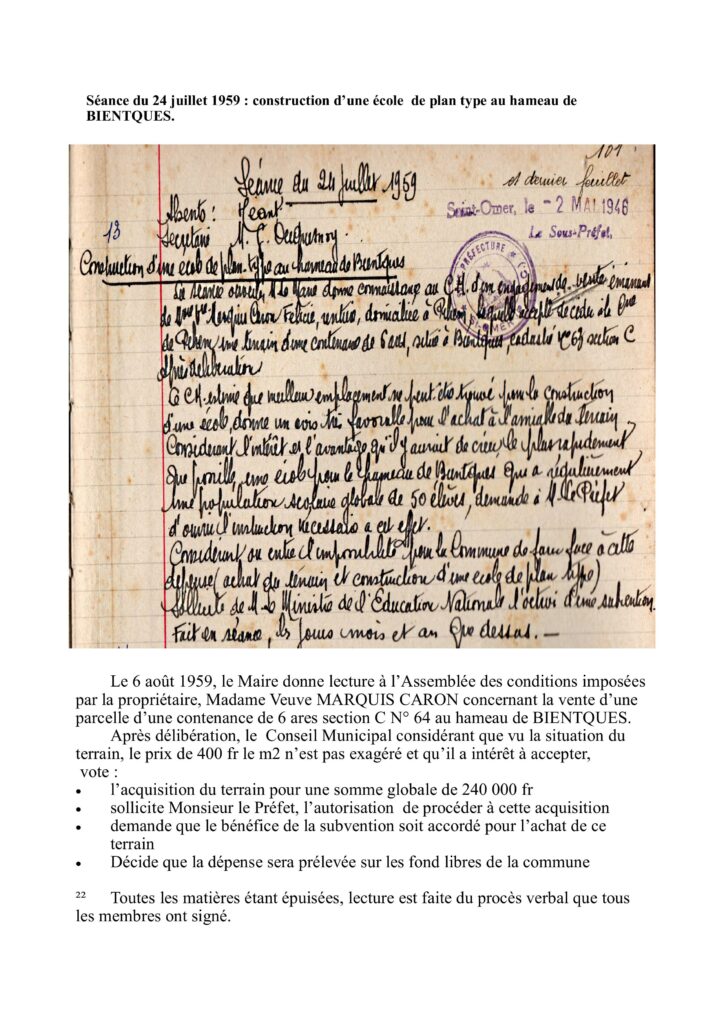 Séance du 24 juillet 1959 : construction d’une école  de plan type au hameau de
BIENTQUES.
101
et dernier feuillet
Séance du 24 juillet 1959
Saint-Omer, le - 2 MAI 1946
Le Sous-Préfet,
Absents : Néant
13
Secrétaire M. F. Decquesnoy
Construction d'une école de plan-type au hameau de Bientques
La séance ouverte, M. le Maire donne connaissance au C.M. d'un engagement de vente émanant
de Mme Vve Marquis Caron Félicie, rentière, domiciliée à Pihem, laquelle accepte de céder à la Cne
de Pihem, une terrain d'une contenance de 6 ares, située à Bientques, cadastré section C
Après délibération
Le C.M. estime que meilleur emplacement ne peut être trouvé pour la construction
d'une école, donne un avis très favorable pour l'achat à l'amiable du terrain
Considérant l'intérêt et l'avantage qu'il y aurait de créer, le plus rapidement
que possible, une école pour le hameau de Bientques qui a régulièrement
une population scolaire globale de 50 élèves, demande à M. le Préfet
d'ouvrir l'instruction nécessaire a cet effet.
Considérant en outre l'impossibilité pour la Commune de faire face à cette
dépense (achat du terrain et construction d'une école de plan type)
Sollicite de M. le Ministre de l'Education Nationale l'octroi d'une subvention.
Fait en séance, les jours mois et an que dessus. —
PRÉFECTURE
Le 6 août 1959, le Maire donne lecture à l’Assemblée des conditions imposées
par la propriétaire, Madame Veuve MARQUIS CARON concernant la vente d’une
parcelle d’une contenance de 6 ares section C N° 64 au hameau de BIENTQUES.
Après délibération, le  Conseil Municipal considérant que vu la situation du
terrain, le prix de 400 fr le m2 n’est pas exagéré et qu’il a intérêt à accepter,
vote :
• l’acquisition du terrain pour une somme globale de 240 000 fr
• sollicite Monsieur le Préfet, l’autorisation  de procéder à cette acquisition
• demande que le bénéfice de la subvention soit accordé pour l’achat de ce
terrain
• Décide que la dépense sera prélevée sur les fond libres de la commune
22 Toutes les matières étant épuisées, lecture est faite du procès verbal que tous
les membres ont signé.